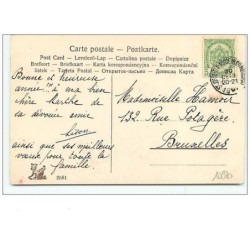 Carte postale – Postkarte.
Post Card – Levelező-Lap – Cartolina postale – Dopisnice
Brefkort – Briefkaart – Karta korespondencyjna – Korespondenční
lístek – Tarjeta Postal – Открытое письмо – Дописна Карта
Bonne et heureuse
année à ma bien
chère Marthe de
sa dévouée amie
Lison
ainsi que ses meilleurs
vœux pour toute la
famille.
Mademoiselle Hamoir
132, Rue Potagère
Bruxelles
20-21